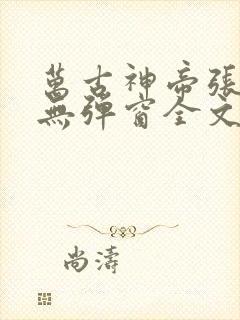 萬古神帝張
無彈窗全文
尚濤